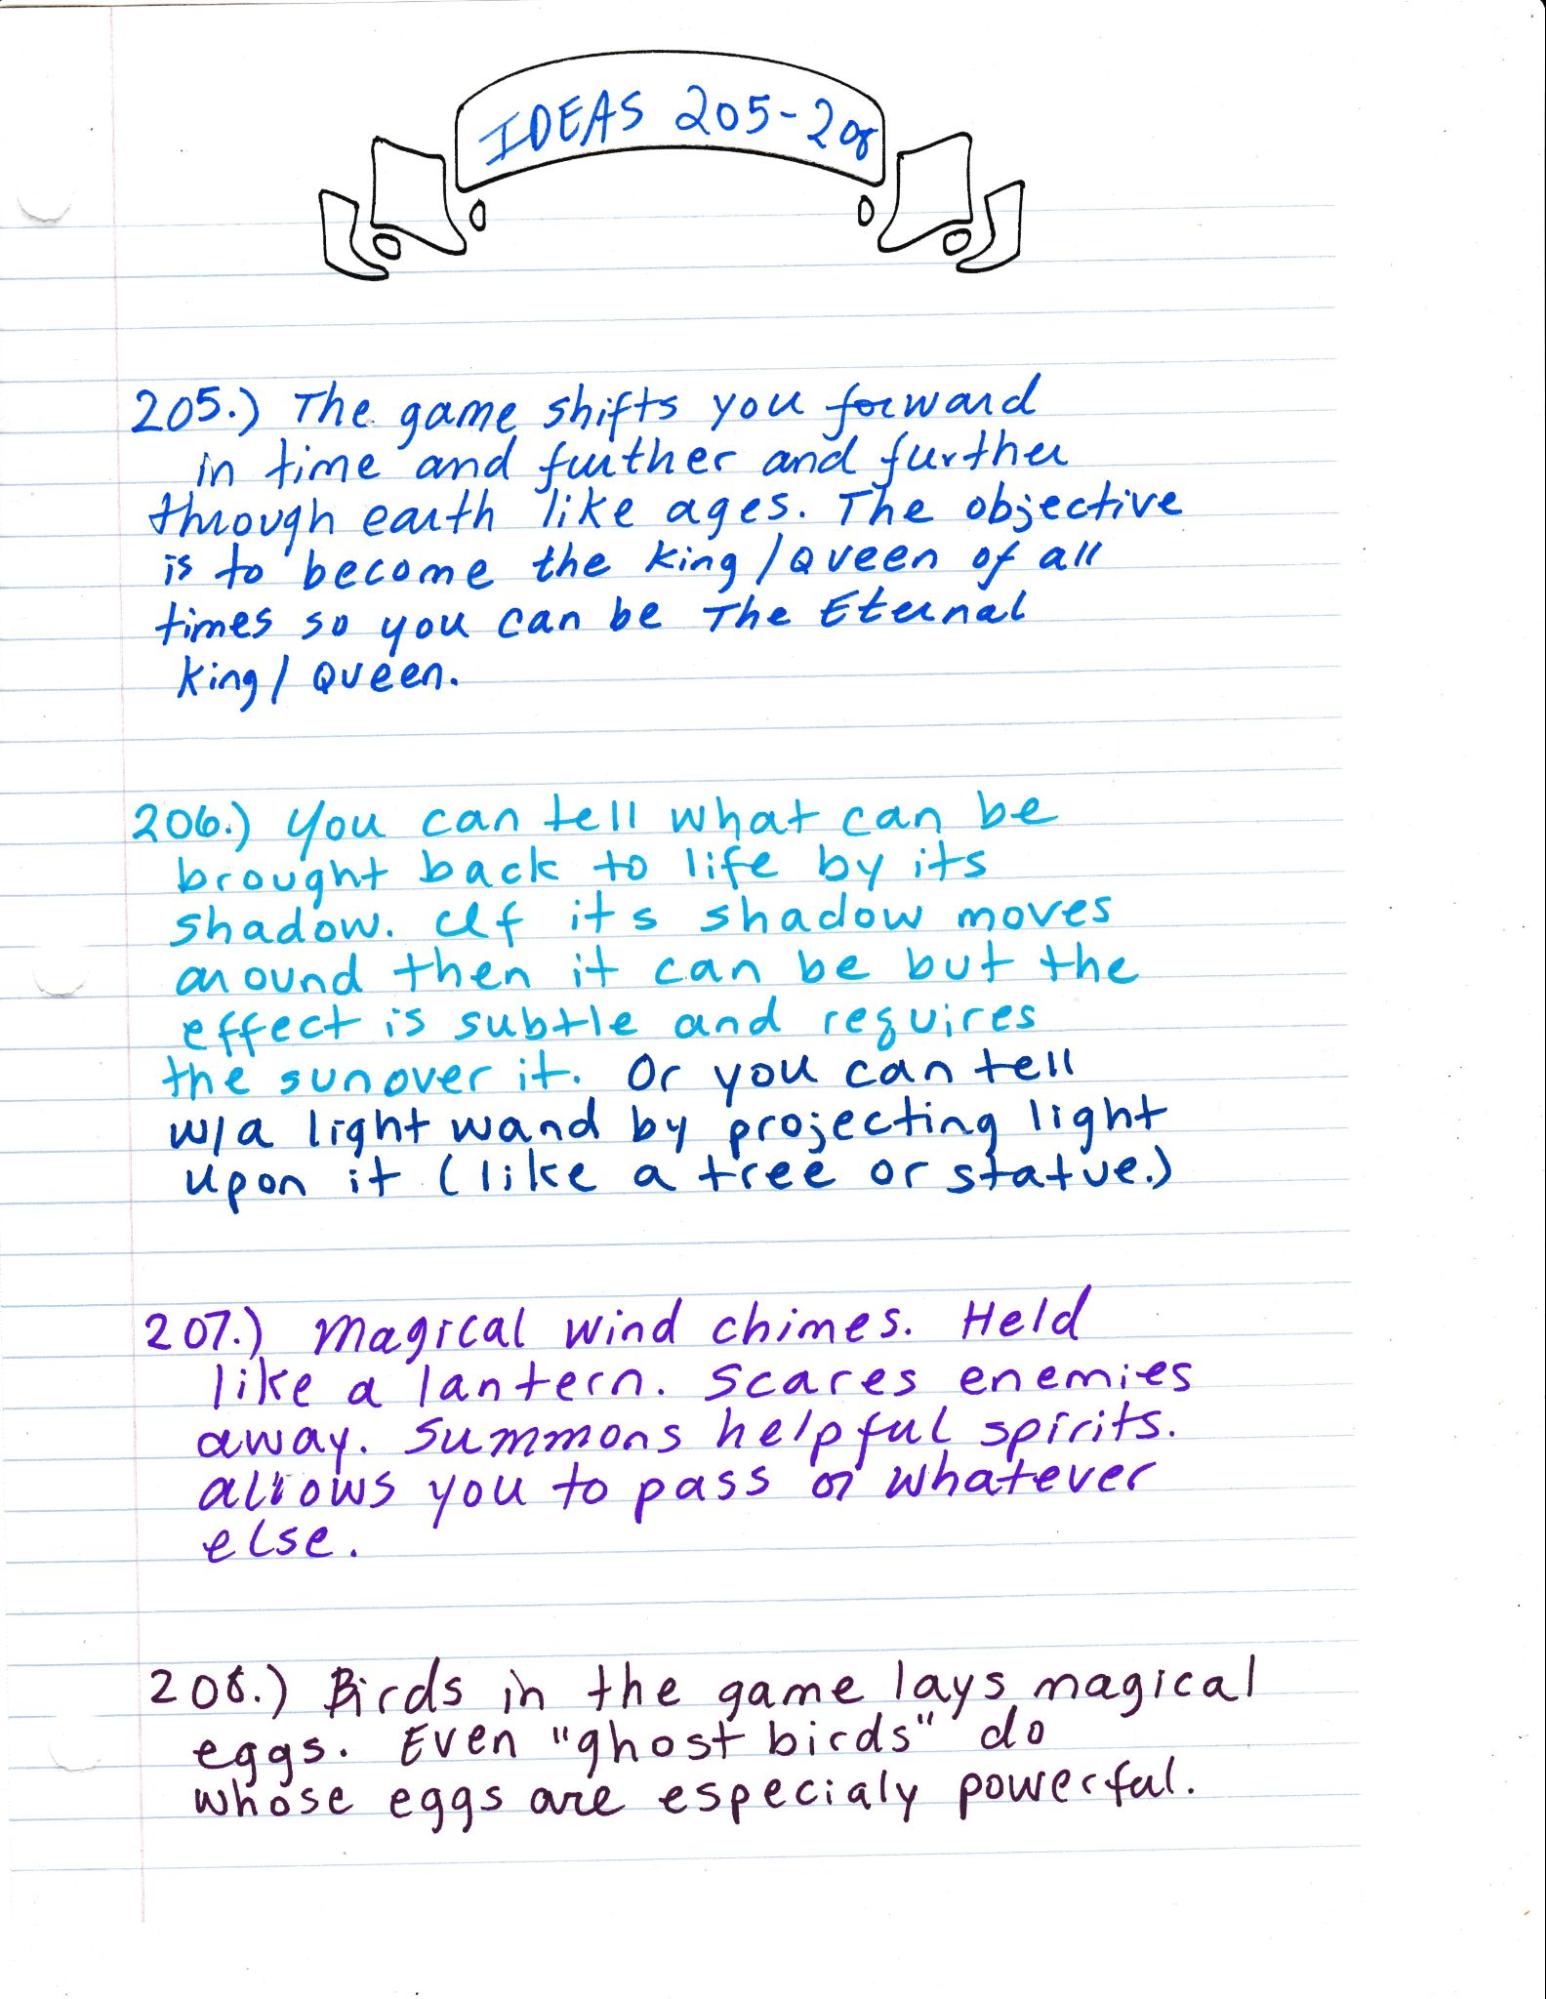 IDEAS 205-208
205.) The game shifts you forward
in time and further and further
through earth like ages. The objective
is to become the king/Queen of all
times so you can be The Eternal
king/Queen.
206.) You can tell what can be
brought back to life by its
shadow. If its shadow moves
around then it can be but the
effect is subtle and requires
the sun over it. Or you can tell
w/a light wand by projecting light
upon it (like a tree or statue.)
207.) Magical wind chimes. Held
like a lantern. Scares enemies
away. Summons helpful spirits.
allows you to pass or whatever
else.
208.) Birds in the game lays magical
eggs. Even "ghost birds" do
whose eggs are especialy powerful.